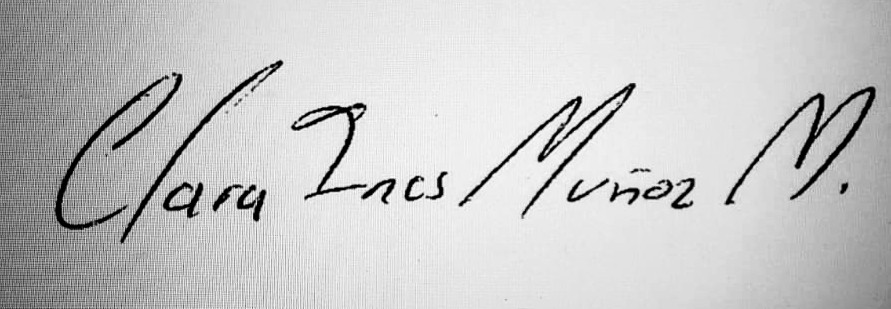 Clara Ines Muñoz M.